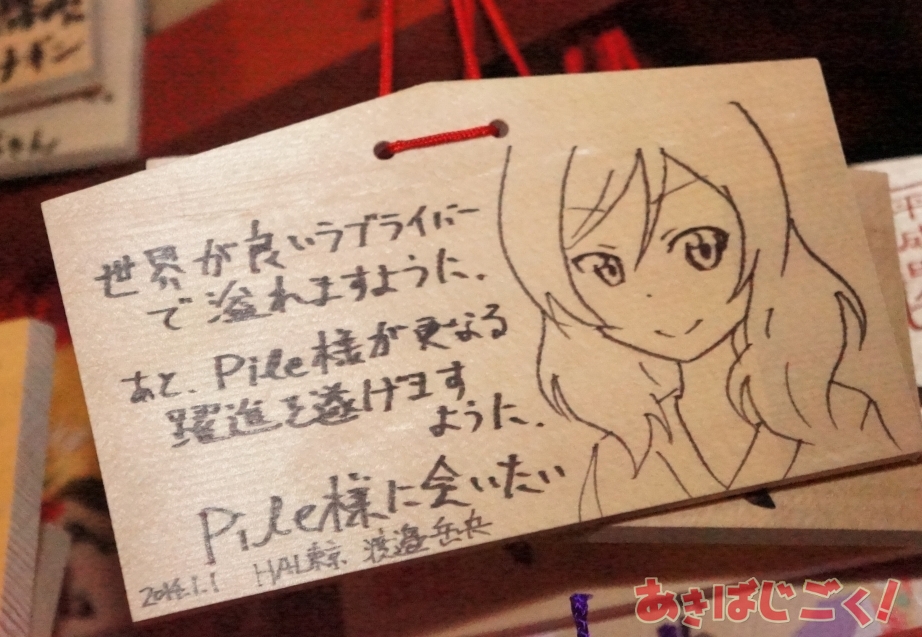 世界が良いラブライバー
で溢れますように。
あと、Pile様が更なる
躍進を遂げます
ように。
Pile様に会いたい
2014.1.1 HAL東京 渡邉岳央
ナギン
さん!
あきばじごく!